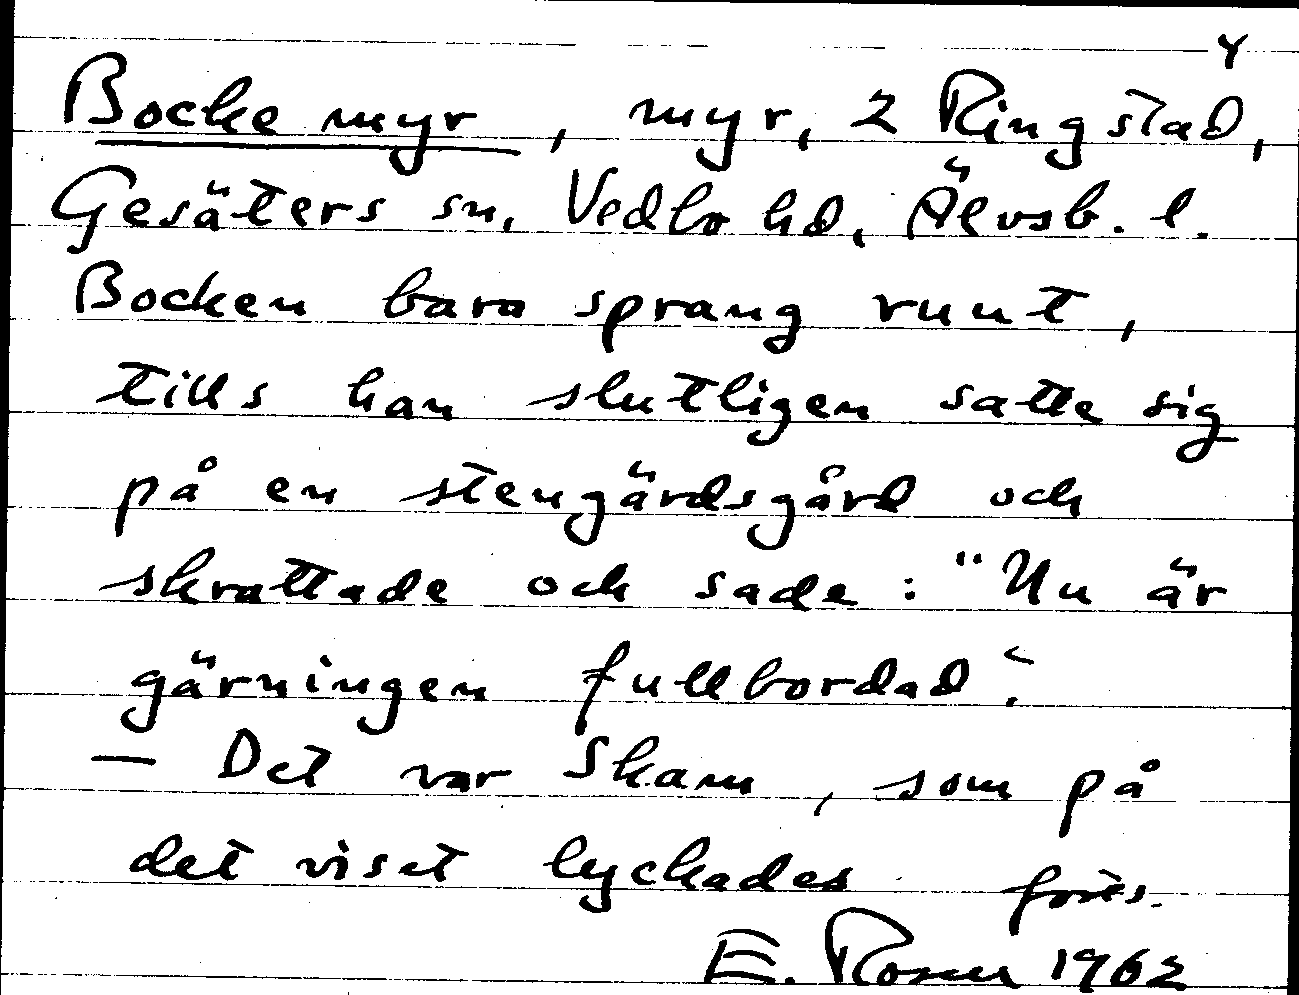 4
Bockemyr, myr, 2 Ringstad,
Gesäters sn, Vedbo hd, Älvsb. l.
Bocken bara sprang runt,
tills han slutligen satte sig
på en stengärdsgård och
skrattade och sade: "Nu är
gärningen fullbordad".
— Det var Skam, som på
det viset lyckades forts.
E. Rosen 1962